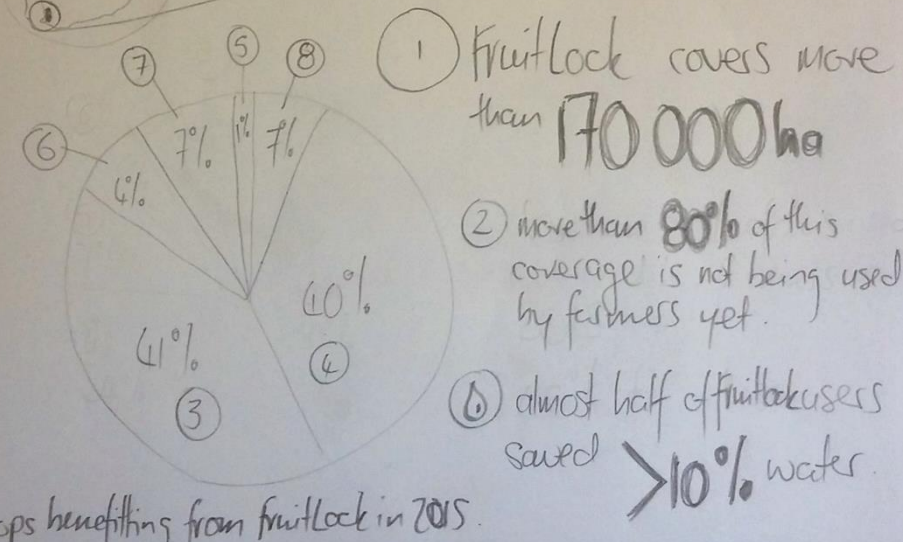 ⑦
⑤
⑧
⑥
7%
1%
7%
4%
40%
④
41%
③
ops benefitting from fruitlock in 2015.
① Fruitlock covers more
than 170 000 ha
② more than 80% of this
coverage is not being used
by farmers yet.
almost half of fruitlock users
saved >10% water.